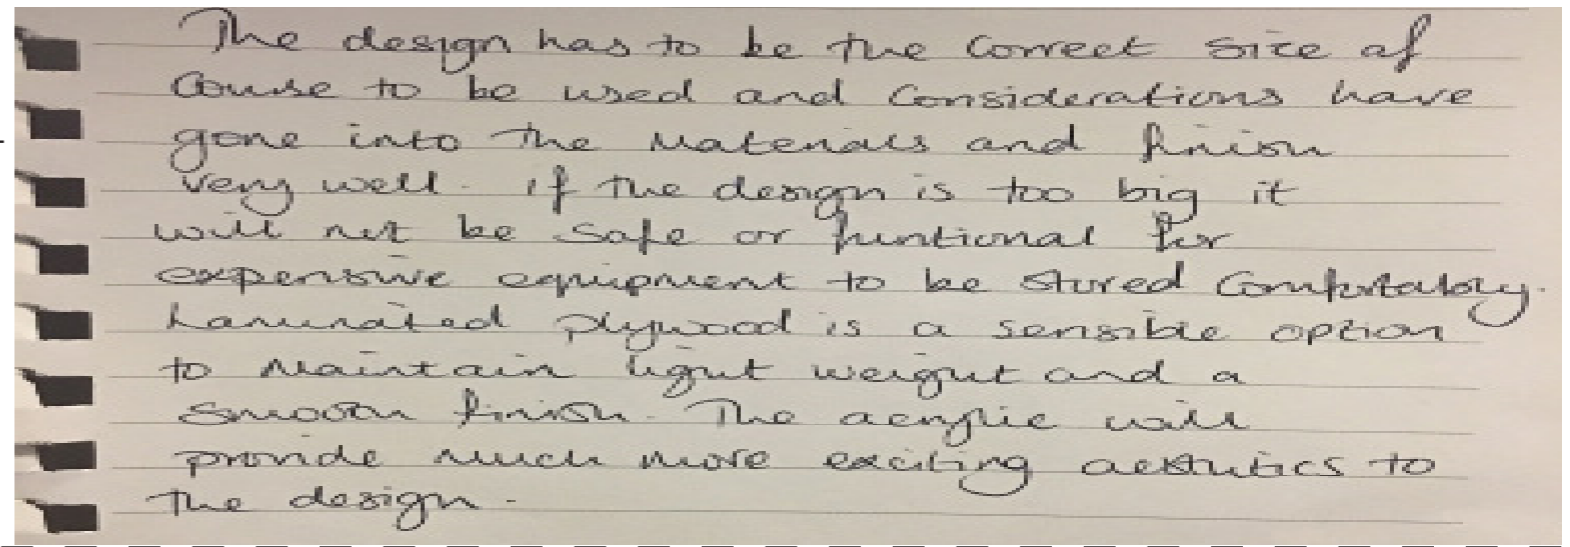 The design has to be the correct size of
course to be used and considerations have
gone into the materials and finish
very well. If the design is too big it
will not be safe or funtional for
expensive equipment to be stored comfortably.
Laminated plywood is a sensible option
to maintain light weight and a
smooth finish. The acrylic will
provide much more exciting aesthetics to
the design.